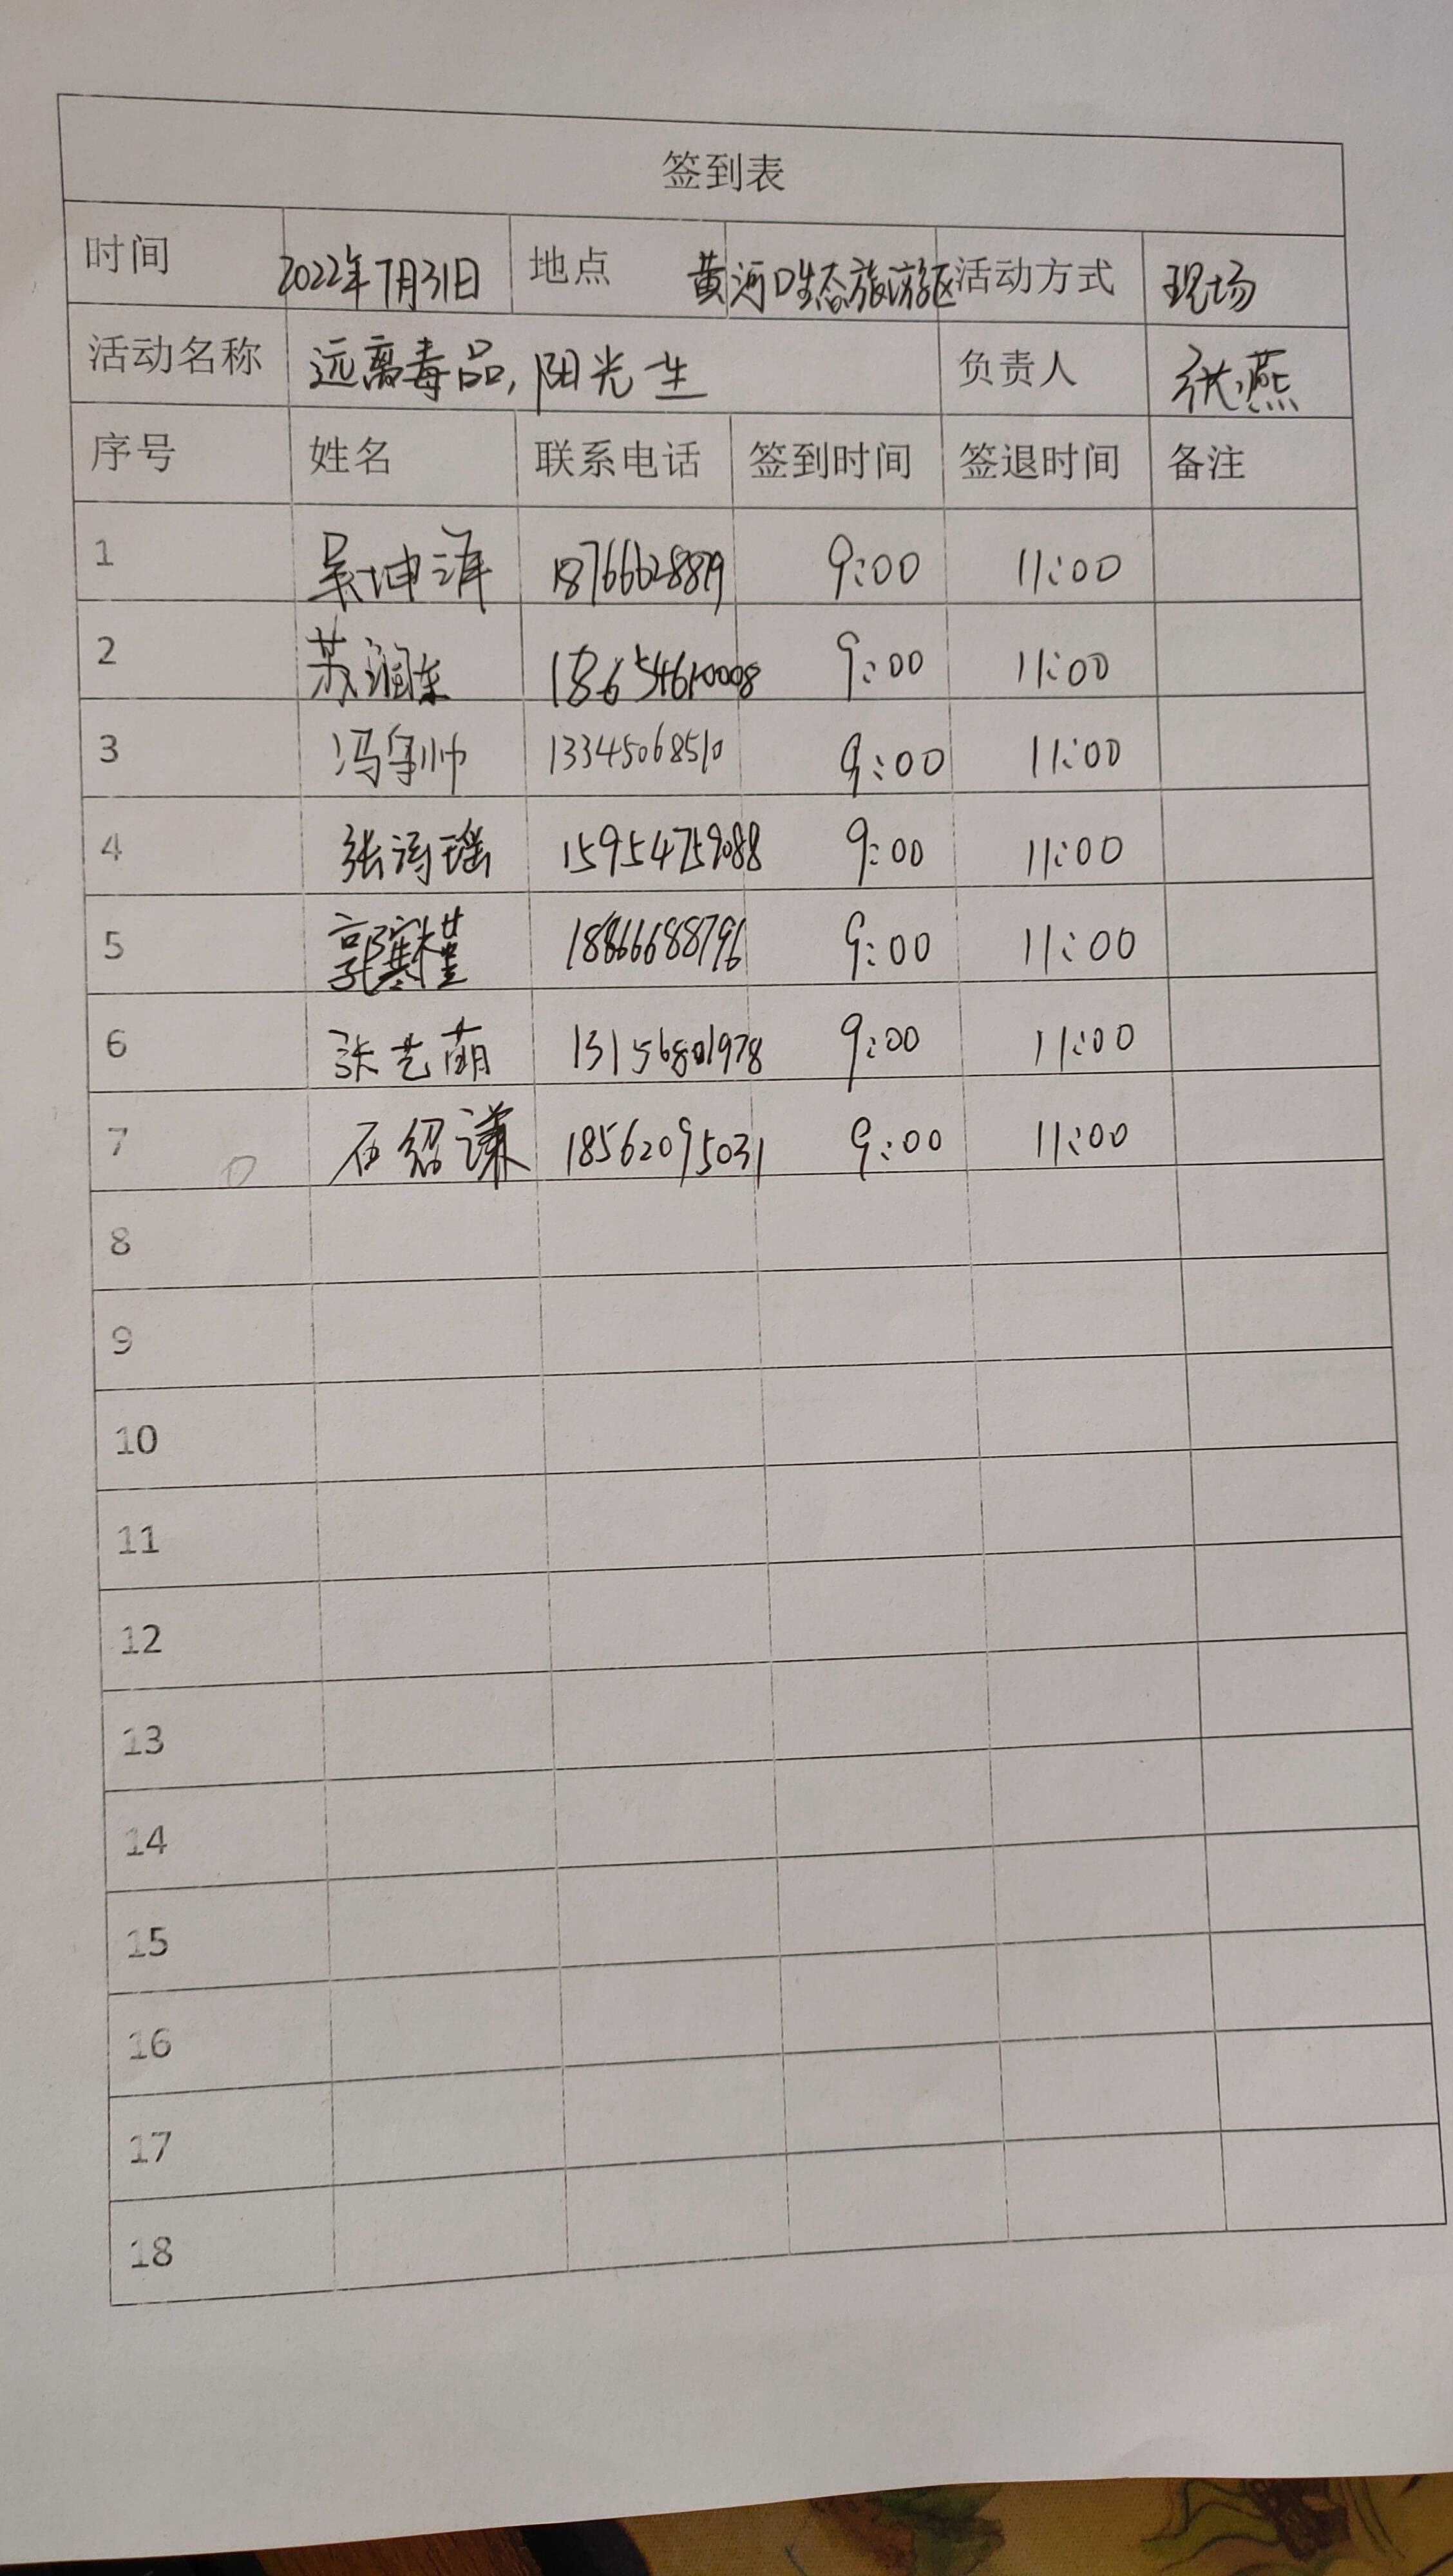 签到表
时间 2022年7月31日 地点 黄河口生态旅游区 活动方式 现场
活动名称 远离毒品,阳光一生 负责人 张燕
序号 姓名 联系电话 签到时间 签退时间 备注
1 吴坤泽 9:00 11:00
2 苏润东 18654610008 9:00 11:00
3 冯帅 13345068510 9:00 11:00
4 张诗瑶 15954759088 9:00 11:00
5 郭 18866688796 9:00 11:00
6 张艺萌 13156801978 9:00 11:00
7 石绍谦 18562095031 9:00 11:00
8
9
10
11
12
13
14
15
16
17
18